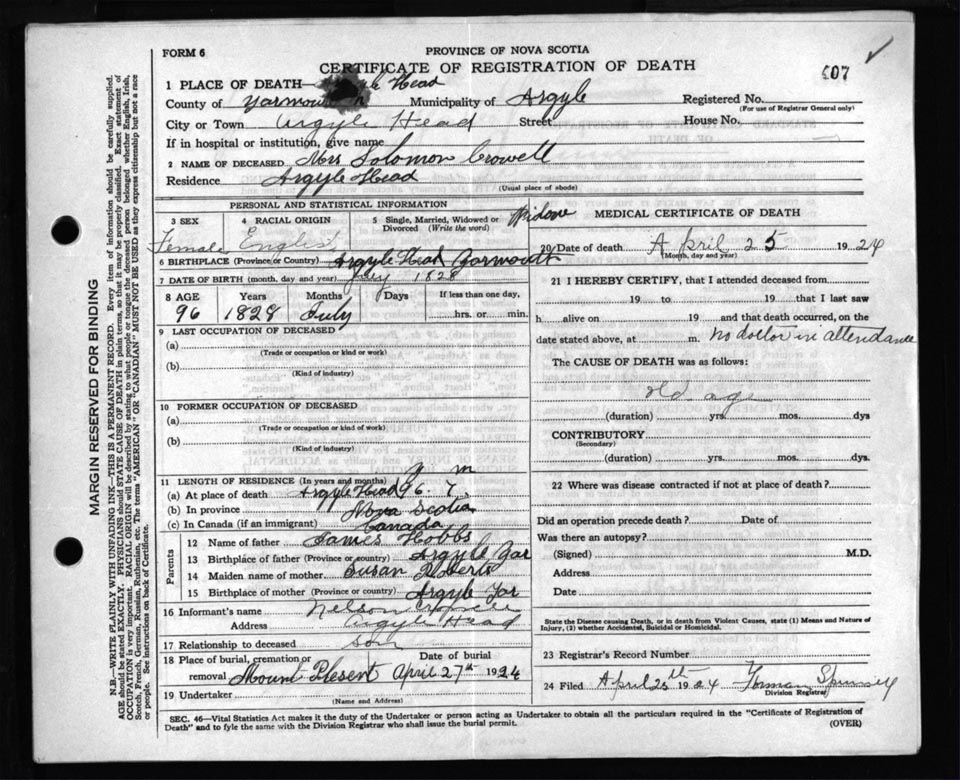 FORM 6
PROVINCE OF NOVA SCOTIA
CERTIFICATE OF REGISTRATION OF DEATH
407
1 PLACE OF DEATH— Head
County of Yarmouth Municipality of Argyle Registered No.
(For use of Registrar General only)
City or Town Argyle Head Street House No.
If in hospital or institution, give name
2 NAME OF DECEASED Mrs Solomon Crowell
Residence Argyle Head
(Usual place of abode)
PERSONAL AND STATISTICAL INFORMATION
3 SEX 4 RACIAL ORIGIN 5 Single, Married, Widowed or Divorced (Write the word) Widow
Female English
6 BIRTHPLACE (Province or Country) Argyle Head Yarmouth
7 DATE OF BIRTH (month, day and year) July 1828
8 AGE Years Months Days If less than one day,
96 1828 July hrs. or min.
9 LAST OCCUPATION OF DECEASED
(a)
(Trade or occupation or kind or work)
(b)
(Kind of industry)
10 FORMER OCCUPATION OF DECEASED
(a)
(Trade or occupation or kind of work)
(b)
(Kind of industry)
y m
11 LENGTH OF RESIDENCE (In years and months)
(a) At place of death Argyle Head 96. 7
(b) In province Nova Scotia
(c) In Canada (if an immigrant) Canada
Parents
12 Name of father James Hobbs
13 Birthplace of father (Province or country) Argyle Yar
14 Maiden name of mother Susan Roberts
15 Birthplace of mother (Province or country) Argyle Yar
16 Informant's name Nelson Crowell
Address Argyle Head
17 Relationship to deceased Son
18 Place of burial, cremation or removal Mount Plesent Date of burial April 27th 1924
19 Undertaker
(Name and Address)
MEDICAL CERTIFICATE OF DEATH
20 Date of death April 25 1924
(Month, day and year)
21 I HEREBY CERTIFY, that I attended deceased from
19 to 19 that I last saw
h alive on 19 and that death occurred, on the
date stated above, at m. No doctor in attendance
The CAUSE OF DEATH was as follows:
old age
(duration) yrs. mos. dys
CONTRIBUTORY
(Secondary)
(duration) yrs. mos. dys
22 Where was disease contracted if not at place of death?
Did an operation precede death? Date of
Was there an autopsy?
(Signed) M.D.
Address
Date
State the Disease causing Death, or in death from Violent Causes, state (1) Means and Nature of
Injury, (2) whether Accidental, Suicidal or Homicidal.
23 Registrar's Record Number
24 Filed April 25th 1924 Forman
Division Registrar
SEC. 46—Vital Statistics Act makes it the duty of the Undertaker or person acting as Undertaker to obtain all the particulars required in the "Certificate of Registration of
Death" and to fyle the same with the Division Registrar who shall issue the burial permit.
(OVER)
MARGIN RESERVED FOR BINDING
N.B.—WRITE PLAINLY WITH UNFADING INK—THIS IS A PERMANENT RECORD. Every item of information should be carefully supplied.
AGE should be stated EXACTLY. PHYSICIANS should STATE CAUSE OF DEATH in plain terms, so that it may be properly classified. Exact statement of
OCCUPATION is very important. RACIAL ORIGIN will be described by stating to what people or tongue the deceased person belonged whether English, Irish,
Scotch, French, German, Russian, Ruthenian, etc. The terms "AMERICAN" OR "CANADIAN" MUST NOT BE USED as they express citizenship but not a race
or people. See instructions on back of Certificate.